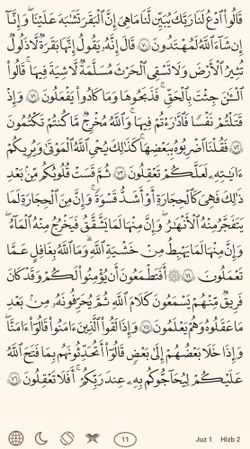 قَالُوا۟ ٱدْعُ لَنَا رَبَّكَ يُبَيِّن لَّنَا مَا هِىَ إِنَّ ٱلْبَقَرَ تَشَٰبَهَ عَلَيْنَا وَإِنَّآ
إِن شَآءَ ٱللَّهُ لَمُهْتَدُونَ ٧٠ قَالَ إِنَّهُۥ يَقُولُ إِنَّهَا بَقَرَةٌ لَّا ذَلُولٌ
تُثِيرُ ٱلْأَرْضَ وَلَا تَسْقِى ٱلْحَرْثَ مُسَلَّمَةٌ لَّا شِيَةَ فِيهَا ۚ قَالُوا۟
ٱلْـَٰٔنَ جِئْتَ بِٱلْحَقِّ ۚ فَذَبَحُوهَا وَمَا كَادُوا۟ يَفْعَلُونَ ٧١ وَإِذْ
قَتَلْتُمْ نَفْسًا فَٱدَّٰرَْٰٔتُمْ فِيهَا ۖ وَٱللَّهُ مُخْرِجٌ مَّا كُنتُمْ تَكْتُمُونَ
٧٢ فَقُلْنَا ٱضْرِبُوهُ بِبَعْضِهَا ۚ كَذَٰلِكَ يُحْىِ ٱللَّهُ ٱلْمَوْتَىٰ وَيُرِيكُمْ
ءَايَٰتِهِۦ لَعَلَّكُمْ تَعْقِلُونَ ٧٣ ثُمَّ قَسَتْ قُلُوبُكُم مِّنۢ بَعْدِ
ذَٰلِكَ فَهِىَ كَٱلْحِجَارَةِ أَوْ أَشَدُّ قَسْوَةً ۚ وَإِنَّ مِنَ ٱلْحِجَارَةِ لَمَا
يَتَفَجَّرُ مِنْهُ ٱلْأَنْهَٰرُ ۚ وَإِنَّ مِنْهَا لَمَا يَشَّقَّقُ فَيَخْرُجُ مِنْهُ ٱلْمَآءُ ۚ
وَإِنَّ مِنْهَا لَمَا يَهْبِطُ مِنْ خَشْيَةِ ٱللَّهِ ۗ وَمَا ٱللَّهُ بِغَٰفِلٍ عَمَّا
تَعْمَلُونَ ٧٤ ۞ أَفَتَطْمَعُونَ أَن يُؤْمِنُوا۟ لَكُمْ وَقَدْ كَانَ
فَرِيقٌ مِّنْهُمْ يَسْمَعُونَ كَلَٰمَ ٱللَّهِ ثُمَّ يُحَرِّفُونَهُۥ مِنۢ بَعْدِ
مَا عَقَلُوهُ وَهُمْ يَعْلَمُونَ ٧٥ وَإِذَا لَقُوا۟ ٱلَّذِينَ ءَامَنُوا۟ قَالُوٓا۟ ءَامَنَّا
وَإِذَا خَلَا بَعْضُهُمْ إِلَىٰ بَعْضٍ قَالُوٓا۟ أَتُحَدِّثُونَهُم بِمَا فَتَحَ ٱللَّهُ
عَلَيْكُمْ لِيُحَآجُّوكُم بِهِۦ عِندَ رَبِّكُمْ ۚ أَفَلَا تَعْقِلُونَ ٧٦
11 Juz 1 Hizb 2